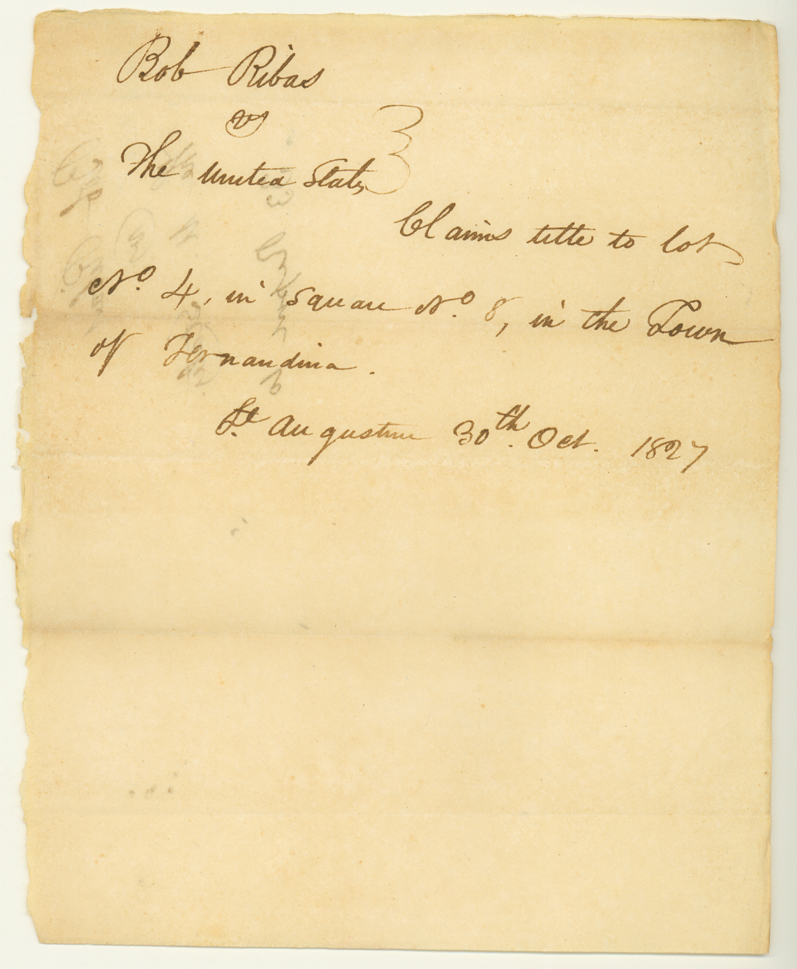 Bob Ribas
vs
The United States
Claims title to lot
No. 4, in Square No. 8, in the Town
of Fernandina.
St. Augustine 30th. Oct. 1827